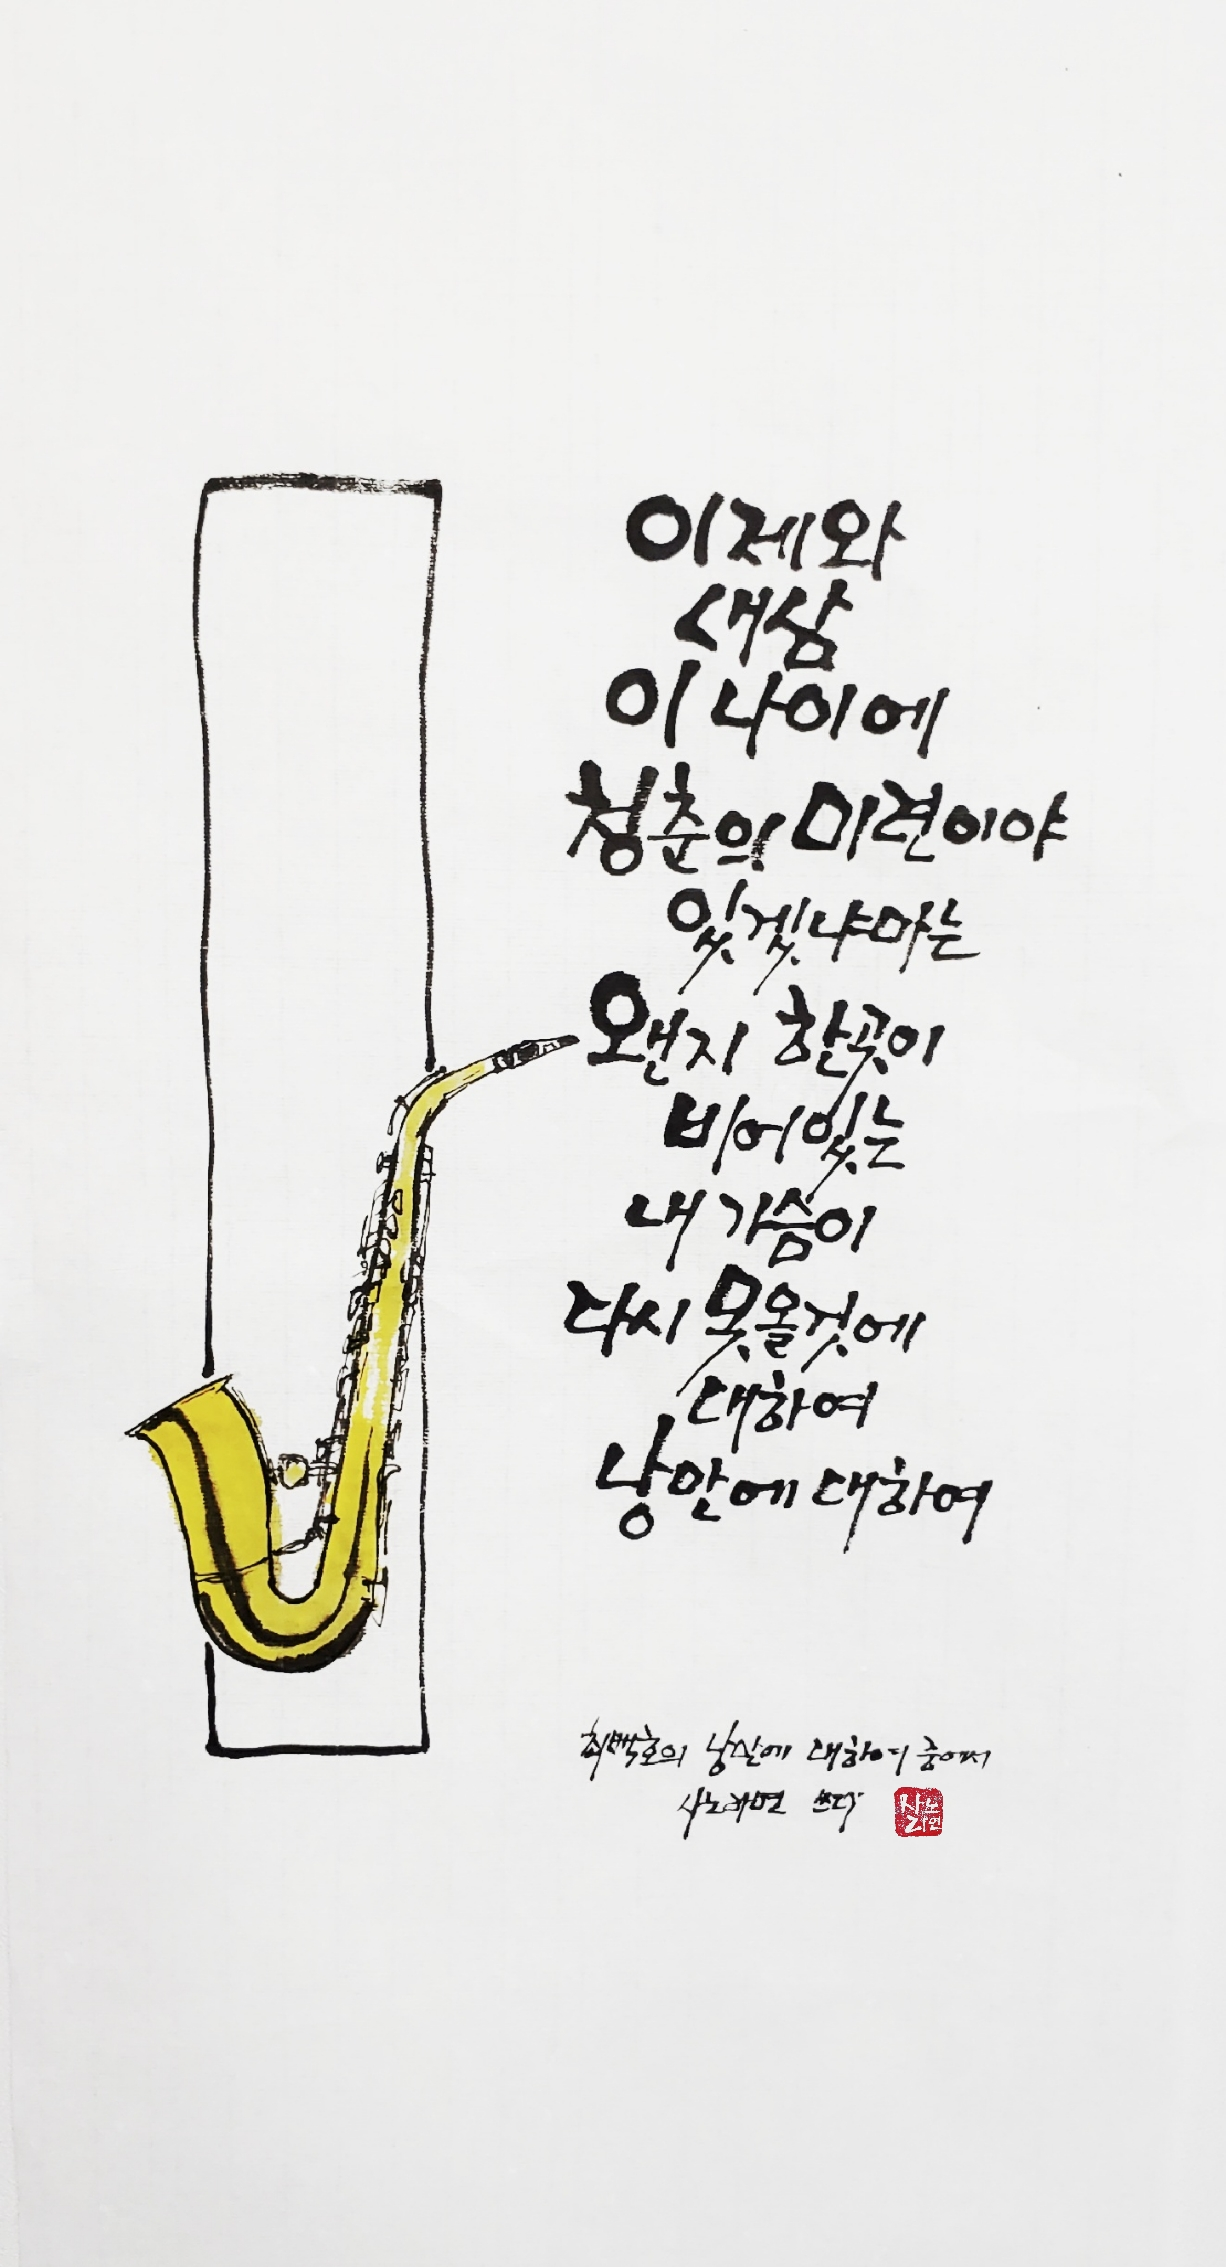 이제와
새삼
이 나이에
청춘의 미련이야
잇겟냐마는
왠지 한곳이
비어잇는
내 가슴이
다시 못올것에
대하여
낭만에 대하여
최백호의 낭만에 대하여 중에서
사노라면 쓰다
사노라면